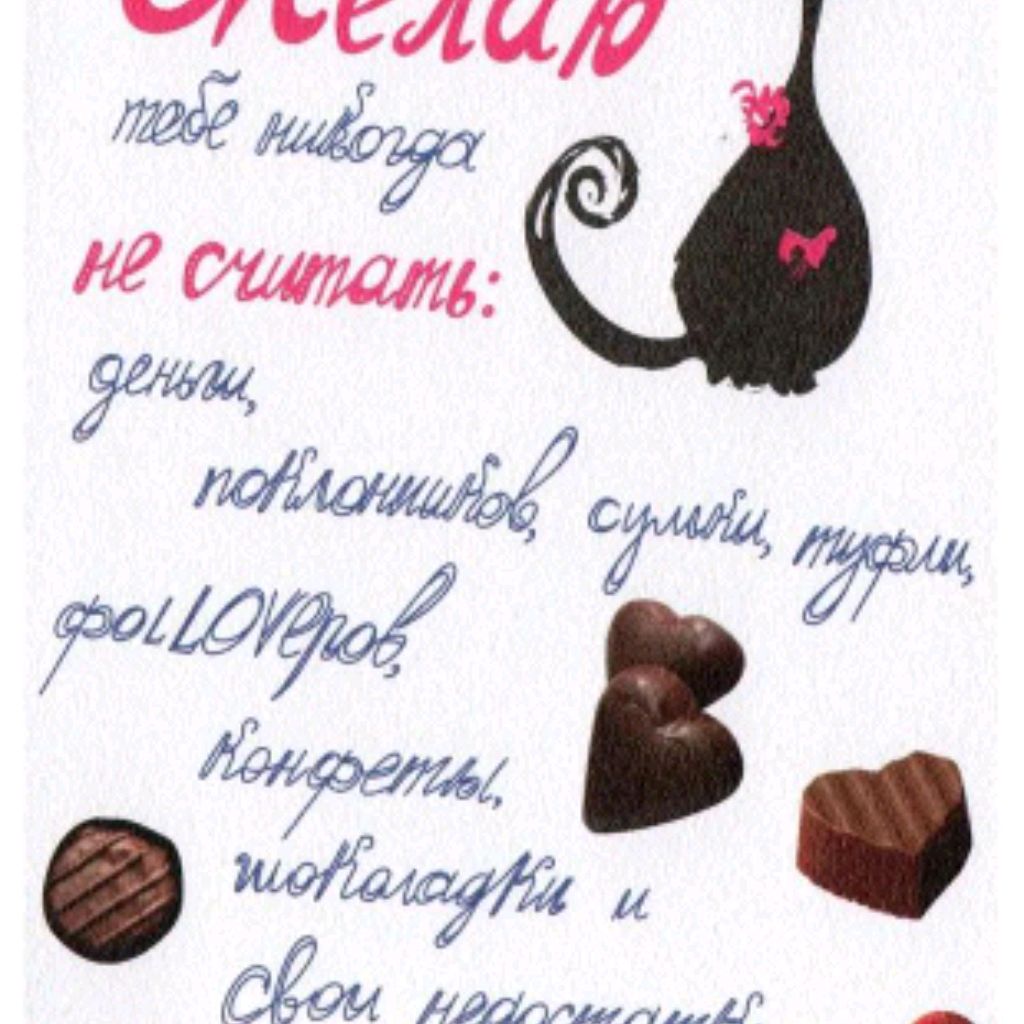 Желаю
тебе никогда
не считать:
деньги,
поклонников, сумки, туфли,
фоlLOVEров,
конфеты,
шоколадки и
свои недостатки